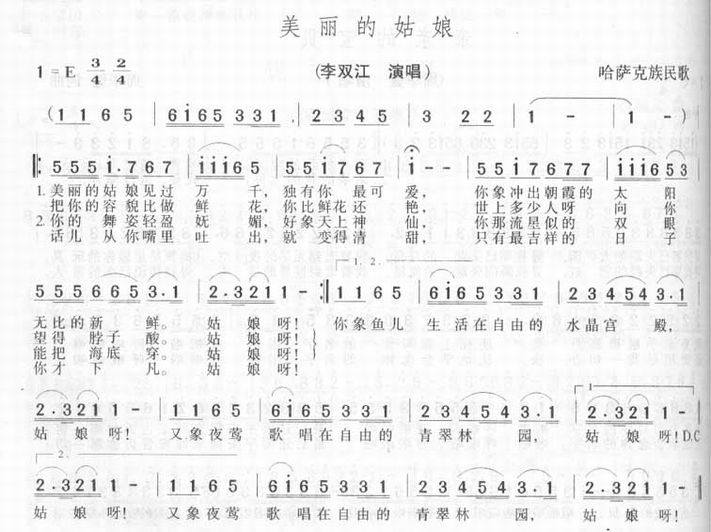 美丽的姑娘
1=E 3/4 2/4 (李双江 演唱) 哈萨克族民歌
(1 1 6 5 | 6 i 6 5 3 3 1 | 2 3 4 5 | 3 2 2 | 1 - | 1 -)
‖: 5 5 5 i. 7 6 7 | i i i 6 5 | 5 5 1 7. 6 7 | i - | 5 5 i 7 6 7 7 | i i i 6 5 5 3
1. 美丽的姑娘见过 万 千, 独有你 最可 爱, 你象冲出朝霞的 太 阳
把你的容貌比做 鲜 花, 你比鲜花还 艳, 世上多少人呀 向 你
2. 你的 舞姿轻盈 妩 媚, 好象天上神 仙, 你那流星似的 双 眼
话儿从你嘴里 吐 出, 就变得清 甜, 只有最吉祥的 日 子
5 5 5 6 6 5 3. 1 | 2. 3 2 1 1 - :‖ 1 1 6 5 | 6 i 6 5 3 3 1 | 2 3 4 5 4 3. 1
无比的新 鲜。 姑 娘呀! 你象鱼儿 生活在自由的 水晶宫 殿,
望得 脖子 酸。 姑 娘呀!
能把 海底 穿。 姑 娘呀!
你才 下 凡。 姑 娘呀!
2. 3 2 1 1 - | 1 1 6 5 | 6 i 6 5 3 3 1 | 2 3 4 5 4 3. 1 | 2. 3 2 1 1 -
姑 娘呀! 又象夜莺 歌唱在自由的 青翠林 园, 姑 娘呀! D.C
2.
2. 3 2 1 1 - | 1 1 6 5 | 6 i 6 5 3 3 1 | 2 3 4 5 4 3. 1 | 2. 3 2 1 1 -
姑 娘呀! 又象夜莺 歌唱在自由的 青翠林 园, 姑 娘呀!